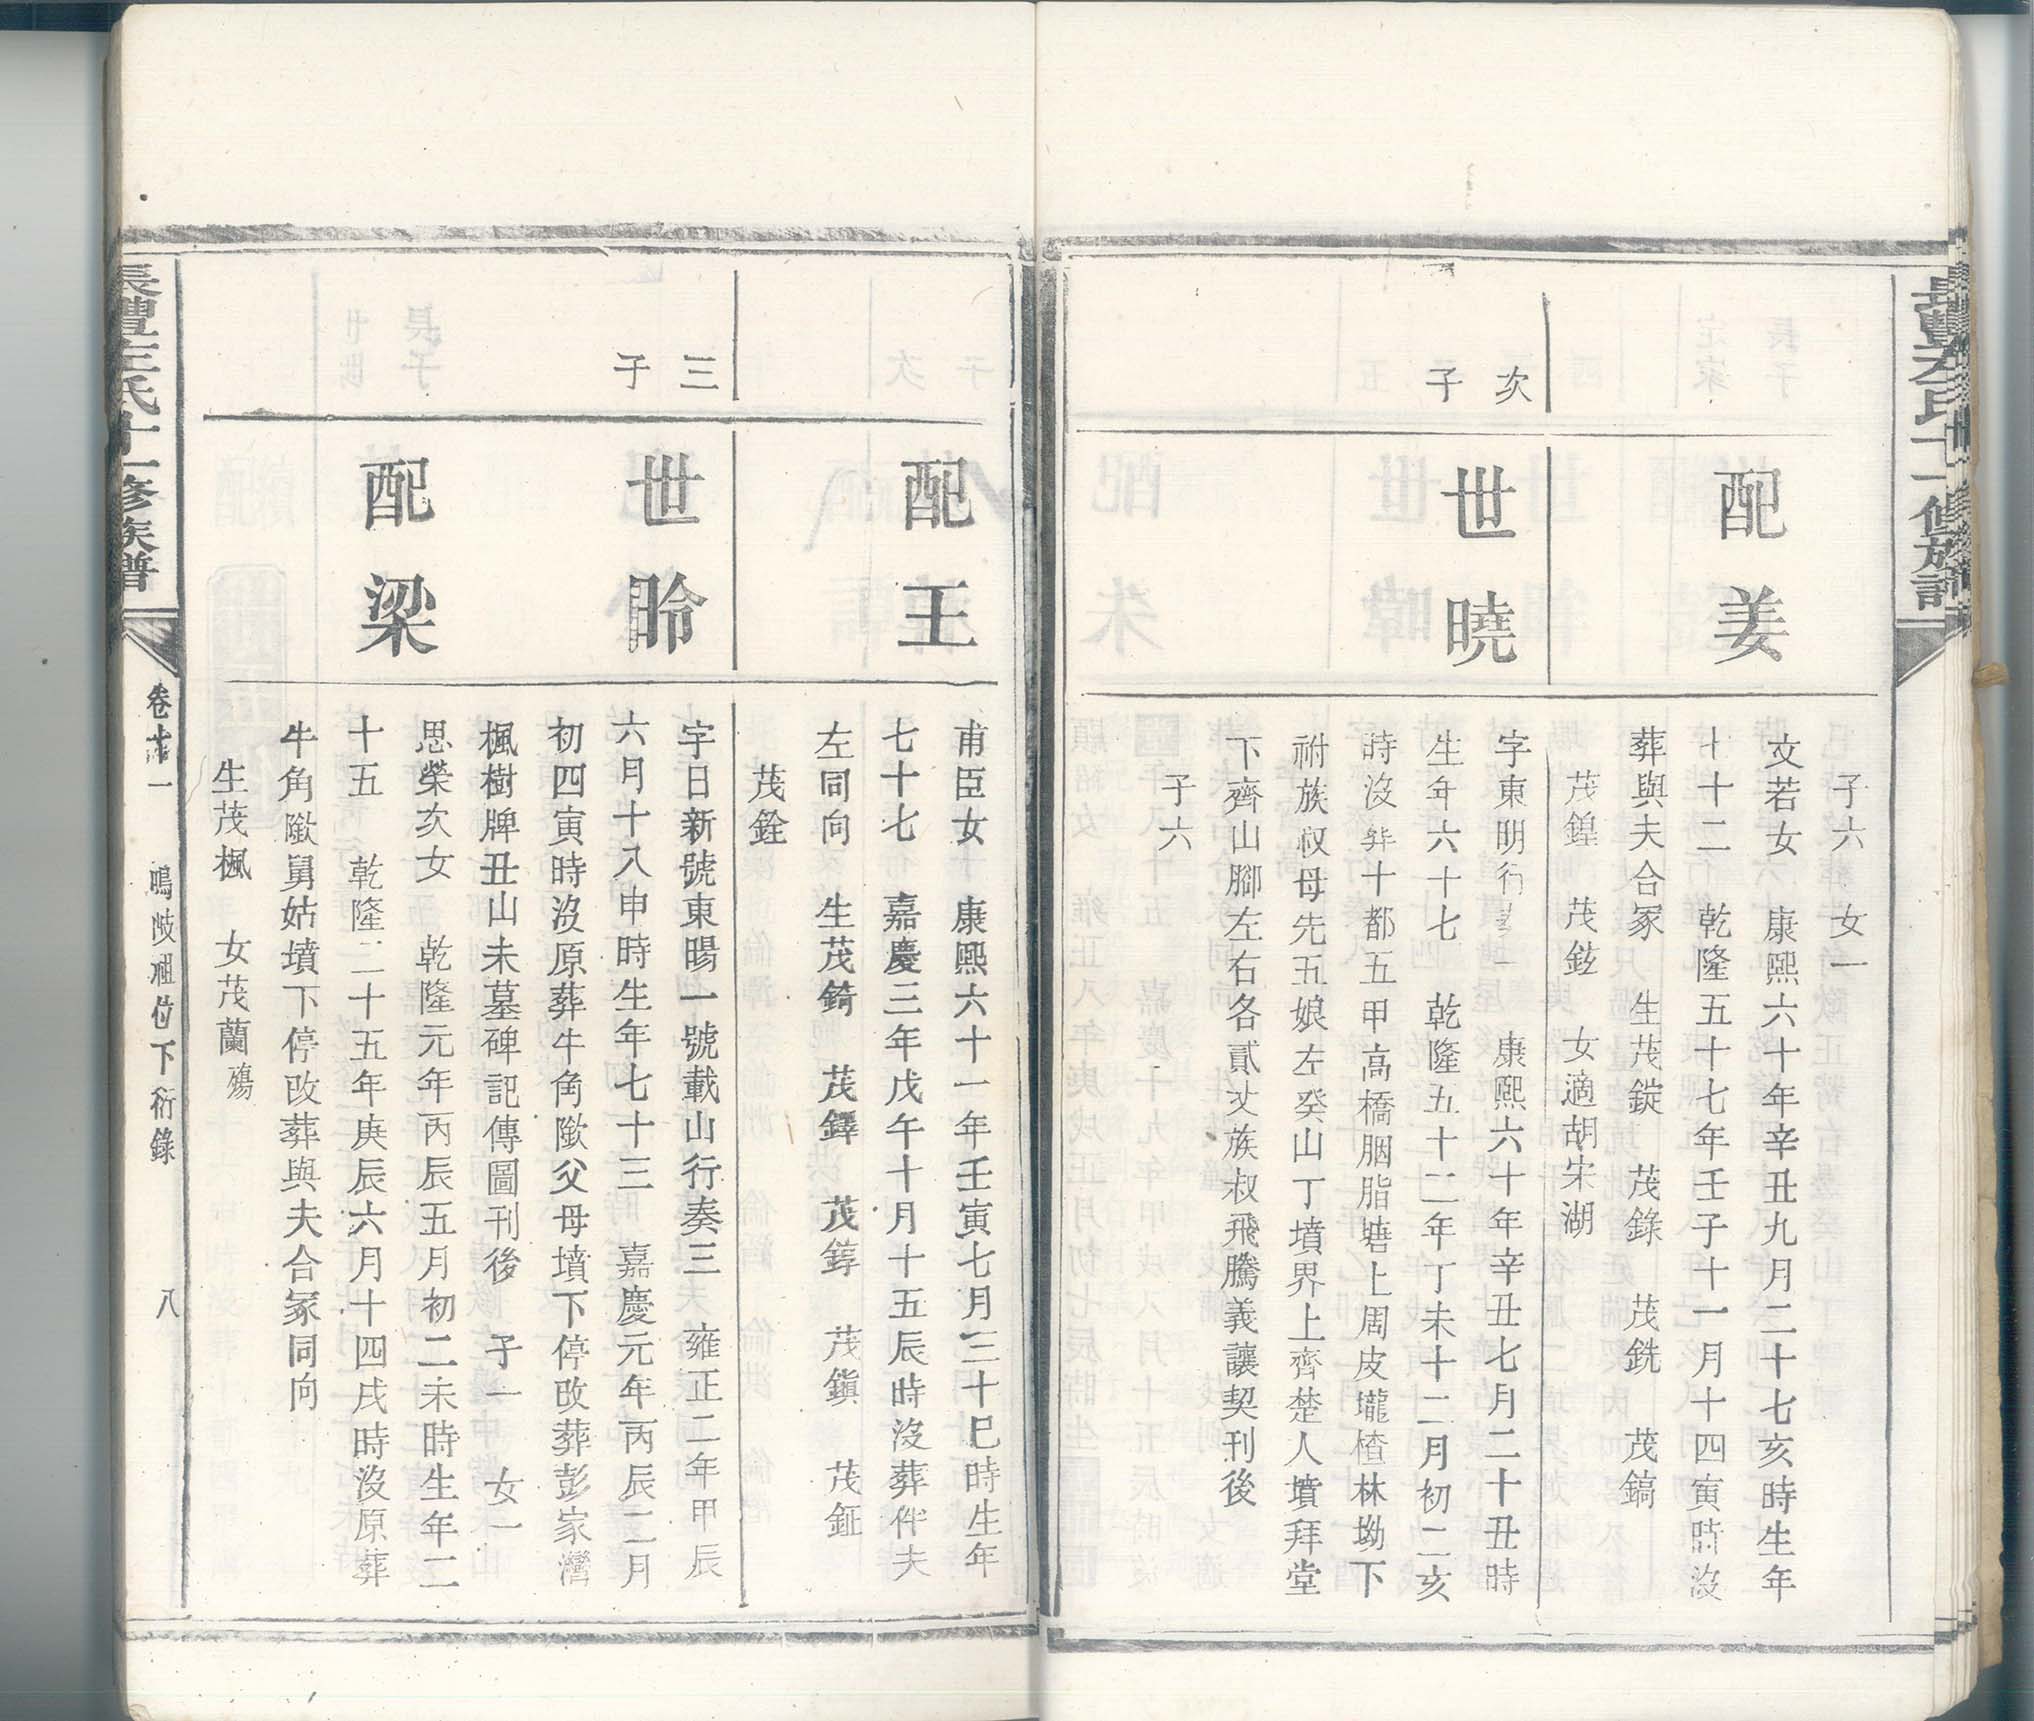 配姜
子六 女一
文若女 康熙六十年辛丑九月二十七亥時生年
七十二 乾隆五十七年壬子十一月十四寅時沒
葬與夫合冢 生茂錠 茂錄 茂銑 茂鎬
茂鍠 茂鉉 女適胡宋湖
次子
世曉
字東明行 康熙六十年辛丑七月二十丑時
生年六十七 乾隆五十二年丁未十二月初二亥
時沒葬十都五甲高橋胭脂塘上周皮壠楂林坳下
祔族叔母先五娘左癸山丁墳界上齊楚人墳拜堂
下齊山腳左右各貳丈族叔飛騰義讓契刊後
子六
配王
甫臣女 康熙六十一年壬寅七月三十巳時生年
七十七 嘉慶三年戊午十月十五辰時沒葬伴夫
左同向 生茂錡 茂鐸 茂錞 茂鎮 茂鉦
茂銓
三子
世昤
字日新號東暘一號載山行奏三 雍正二年甲辰
六月十八申時生年七十三 嘉慶元年丙辰二月
初四寅時沒原葬牛角歞父母墳下停改葬彭家灣
楓樹牌丑山未墓碑記傳圖刊後 子一 女一
配梁
思榮次女 乾隆元年丙辰五月初二未時生年二
十五 乾隆二十五年庚辰六月十四戌時沒原葬
牛角歞舅姑墳下停改葬與夫合冢同向
生茂楓 女茂蘭殤
長澧左氏十一修族譜
卷十一 鳴歧祖位下衍錄 八